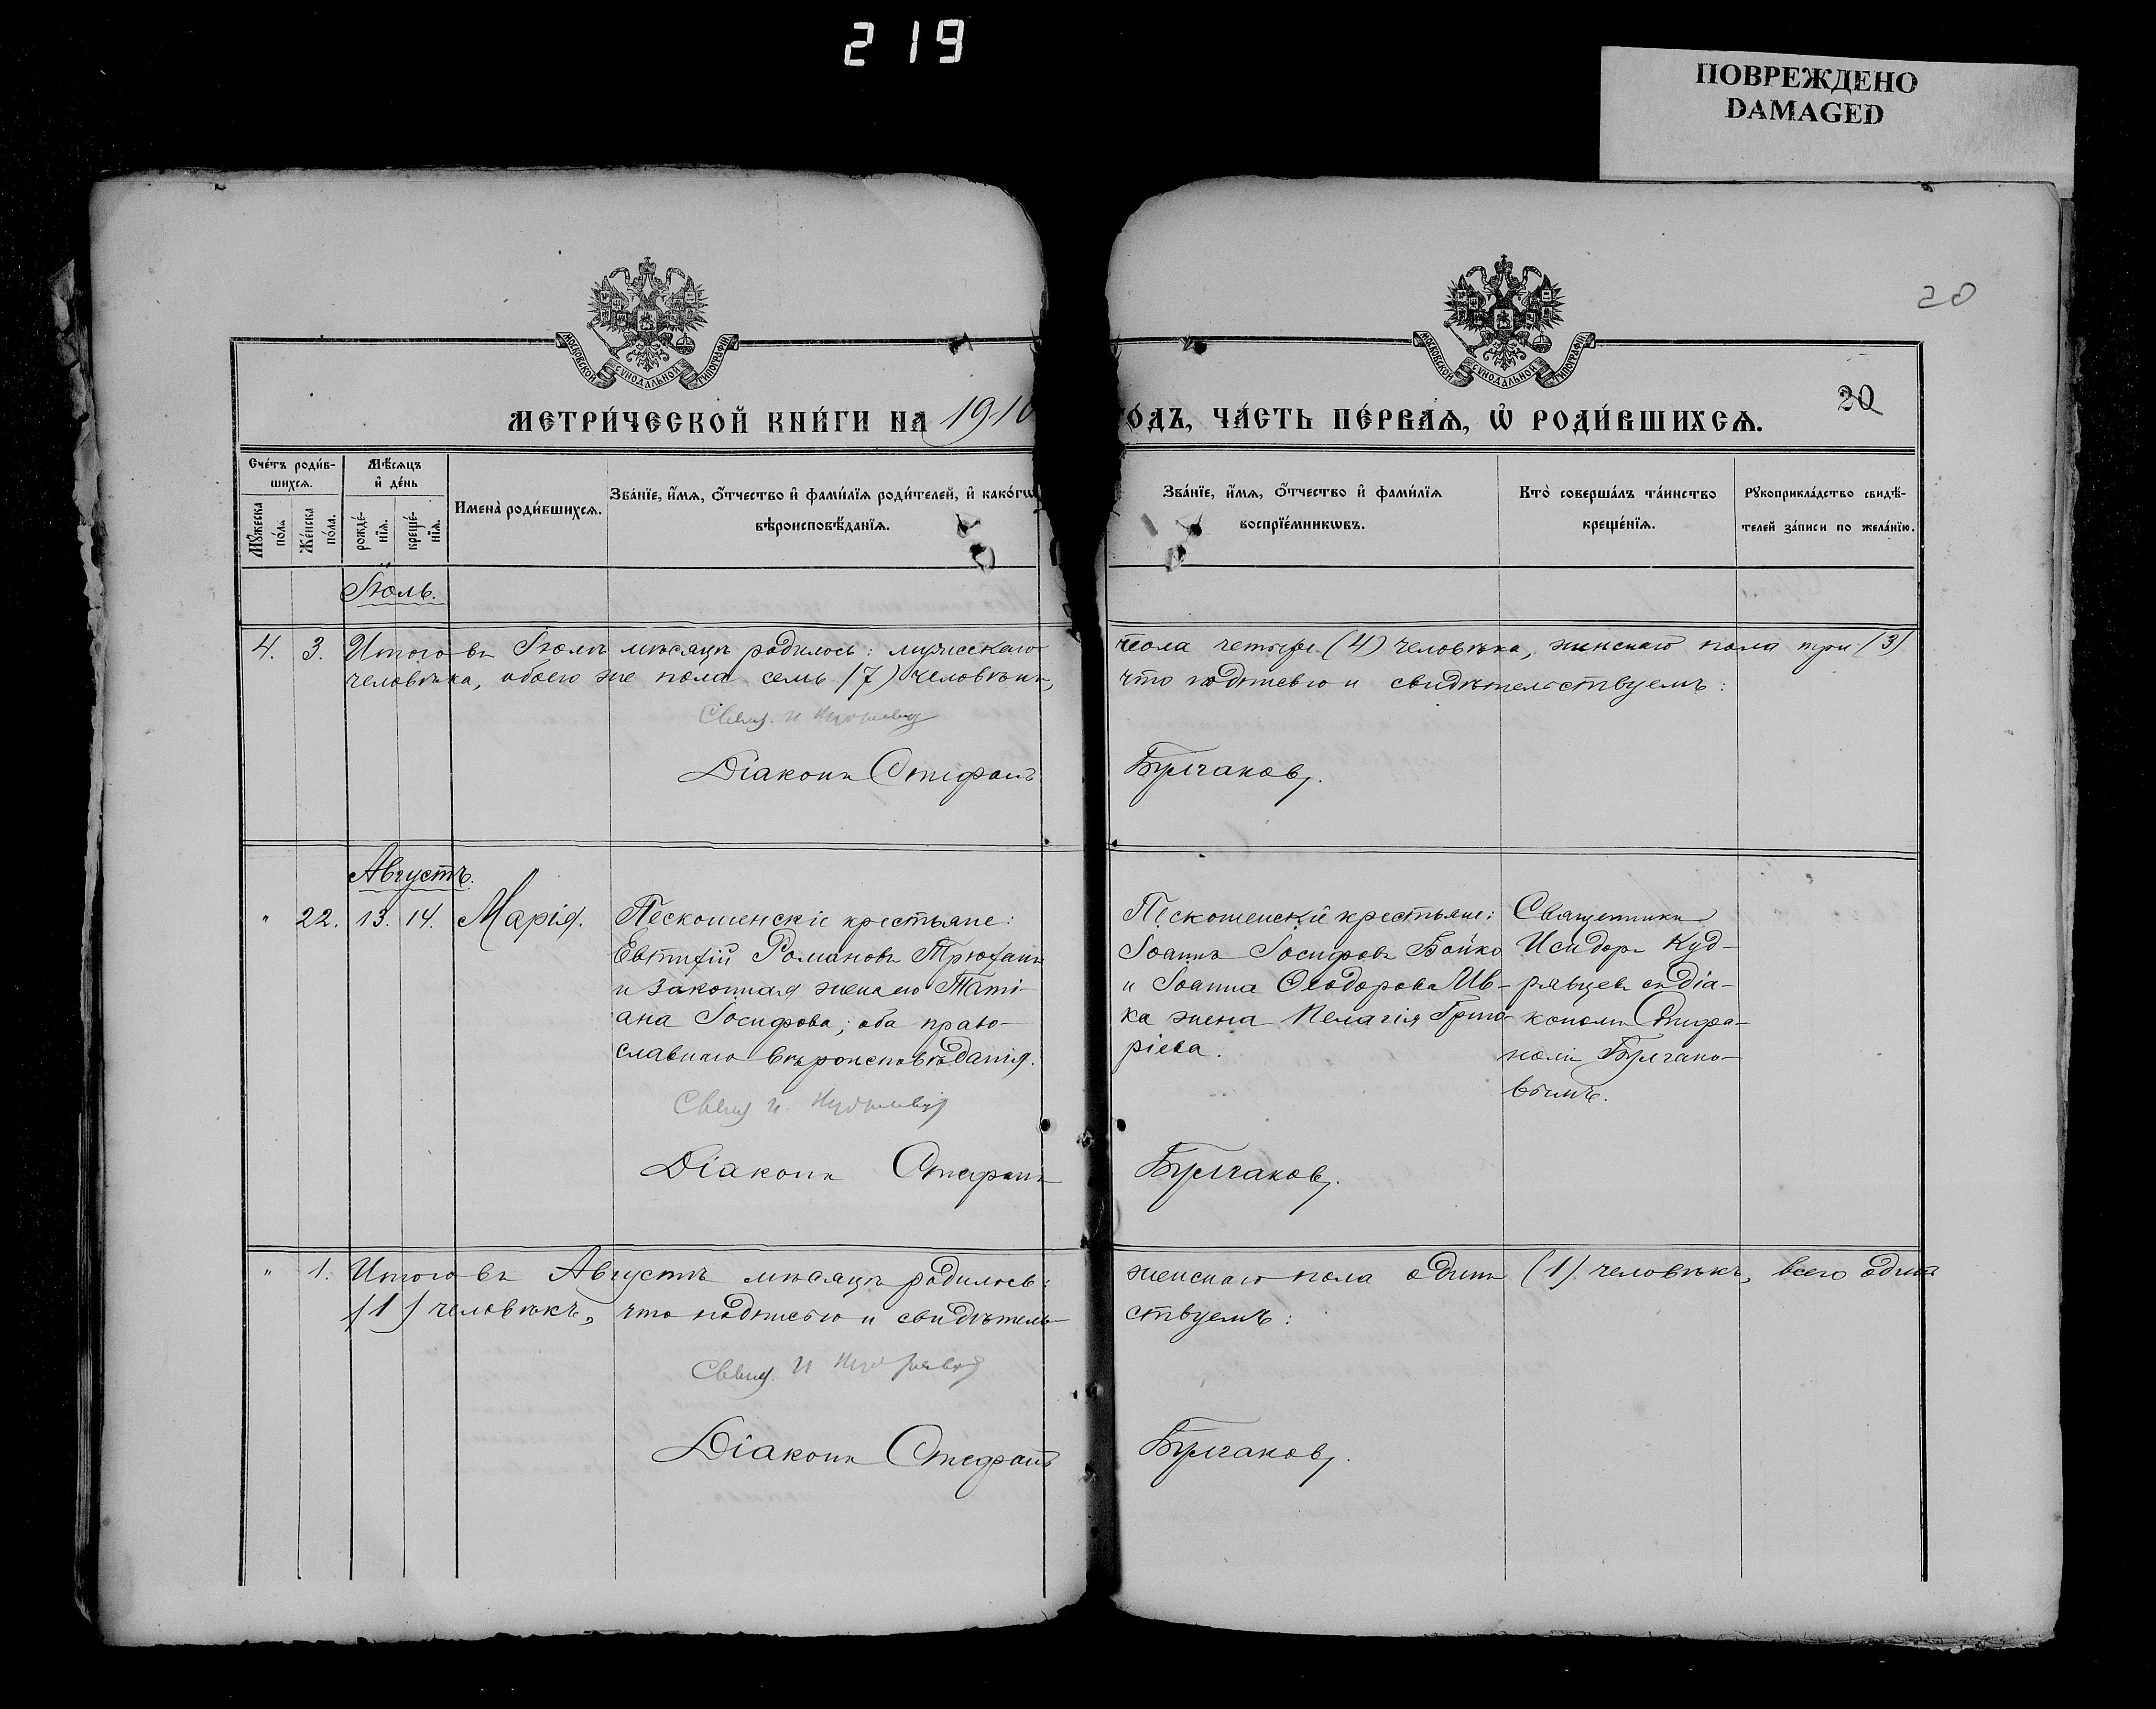 219
ПОВРЕЖДЕНО
DAMAGED
20
МОСКОВСКОЙ СѴНОДАЛЬНОЙ ТИПОГРАФІИ
МОСКОВСКОЙ СѴНОДАЛЬНОЙ ТИПОГРАФІИ
20
МЕТРИ́ЧЕСКОЙ КНИ́ГИ НА 1910
ОДЪ, ЧА́СТЬ ПЕ́РВАѦ, Ѡ҆ РОДИ́ВШИХСѦ.
Сче́тъ роди́вшихсѧ.
Мꙋ́жеска по́ла
Же́нска по́ла.
Мѣ́сѧцъ и҆ де́нь
рожде́нїѧ.
креще́нїѧ.
Имена̀ роди́вшихсѧ.
Зва́нїе, и҆́мѧ, ѻ҆́тчество и҆ фами́лїѧ роди́телей, и҆ како́гѡ
вѣроисповѣ́данїѧ.
Зва́нїе, и҆́мѧ, ѻ҆́тчество и҆ фами́лїѧ
воспрїе́мникѡвъ.
Кто̀ соверша́лъ та́инство
креще́нїѧ.
Рꙋкоприкла́дство свидѣ́-
телей за́писи по жела́нїю.
Іюль.
4. 3. Итого въ Іюлѣ мѣсяцѣ родилось: мужескаго
пола четыре (4) человѣка, женскаго пола три (3)
человѣка, обоего же пола семь (7) человѣкъ,
что подписью и свидѣтельствуемъ:
Свящ. И Кудрявцев
Діаконъ Стефанъ
Булгаковъ.
Августъ.
" 22. 13. 14. Марія.
Пескошенскіе крестьяне:
Евтихій Романовъ Трюханъ
и законная жена его Тати-
ана Іосифова; оба право-
славнаго вѣроисповѣданія.
Пескошенскіе крестьяне:
Іоаннъ Іосифовъ Бойко
и Іоанна Ѳеодорова Ив-
ка жена Пелагія Григо-
ріева.
Священникъ
Исидоръ Куд-
рявцевъ съ діа-
кономъ Стефа-
номъ Булгако-
вымъ.
Свящ И. Кудрявцев
Діаконъ Стефанъ
Булгаковъ.
" 1. Итого въ Августѣ мѣсяцѣ родилось:
женскаго пола одинъ (1) человѣкъ, всего одинъ
(1) человѣкъ, что подписью и свидѣтель-
ствуемъ:
Свящ. И Кудрявцев
Діаконъ Стефанъ
Булгаковъ.